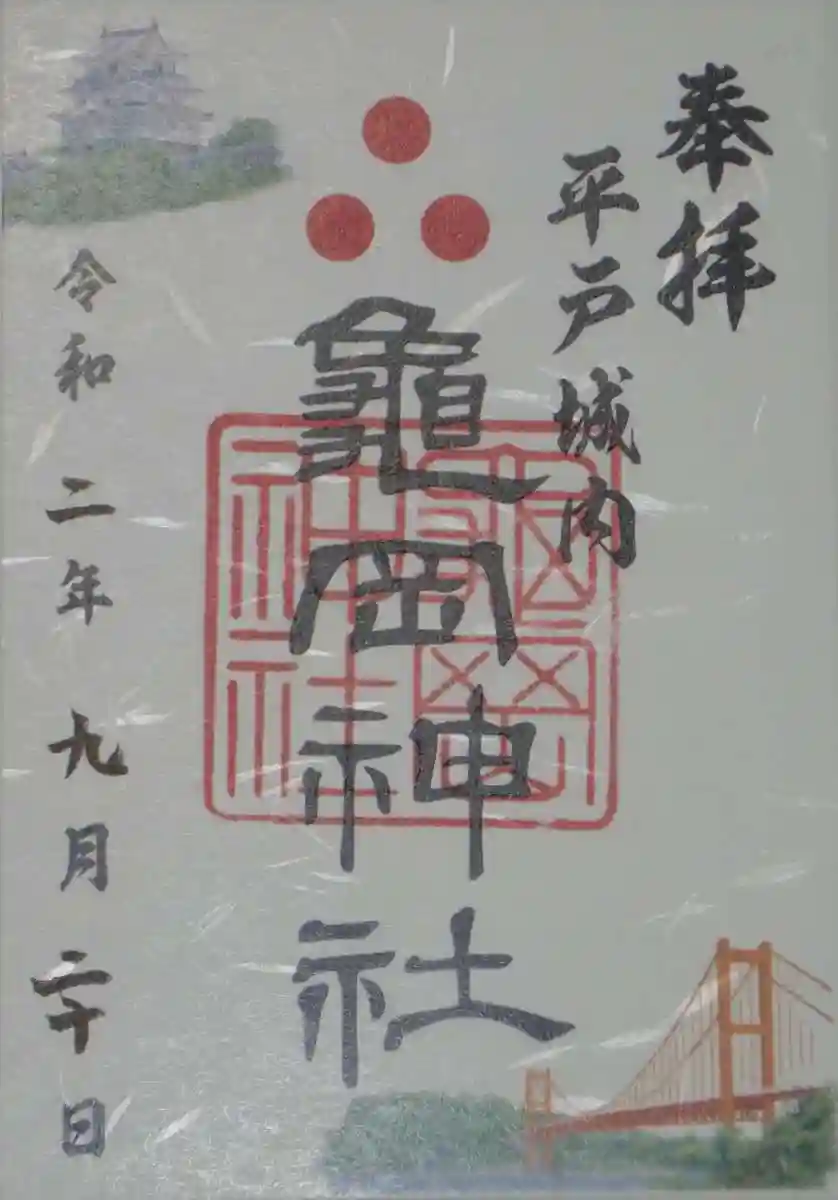 奉拝
平戸城内
龜岡神社
龜岡神社
令和二年九月二十日